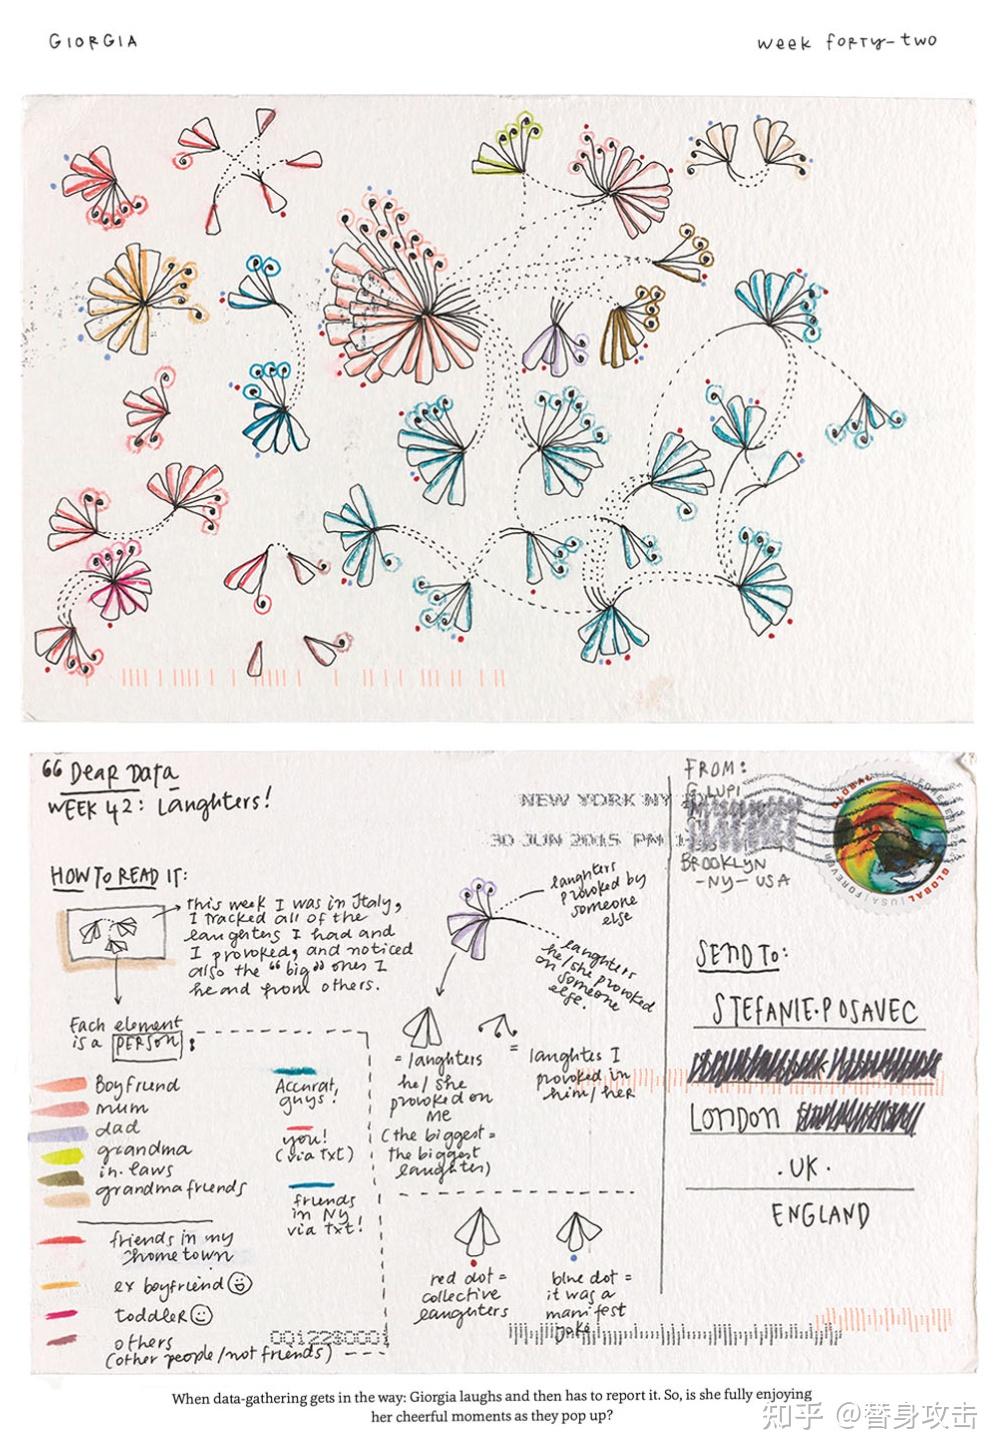 GIORGIA
week forty-two
“ Dear Data
WEEK 42: Laughters!
HOW TO READ IT:
this week I was in Italy,
I tracked all of the
laughters I had and
I provoked, and noticed
also the "big" ones I
heard from others.
Each element
is a PERSON:
Boyfriend
mum
dad
grandma
in-laws
grandma friends
friends in my
hometown
ex boyfriend
toddler
others
(other people/not friends)
Accurat,
guys!
you!
(via txt)
friends
in NY
via txt!
laughters
provoked by
someone
else
laughters
he/she provoked
on someone
else.
= laughters
he/she
provoked on
me
(the biggest =
the biggest
laughter)
= laughtes I
provoked in
him/her
red dot =
collective
laughters
blue dot =
it was a
manifest
joke
NEW YORK NY
30 JUN 2015 PM 1
FROM:
G. LUPI
BROOKLYN
-NY- USA
GLOBAL
USA FOREVER
GLOBAL
USA FOREVER
SEND TO:
STEFANIE·POSAVEC
LONDON
·UK·
ENGLAND
When data-gathering gets in the way: Giorgia laughs and then has to report it. So, is she fully enjoying
her cheerful moments as they pop up?
知乎 @替身攻击